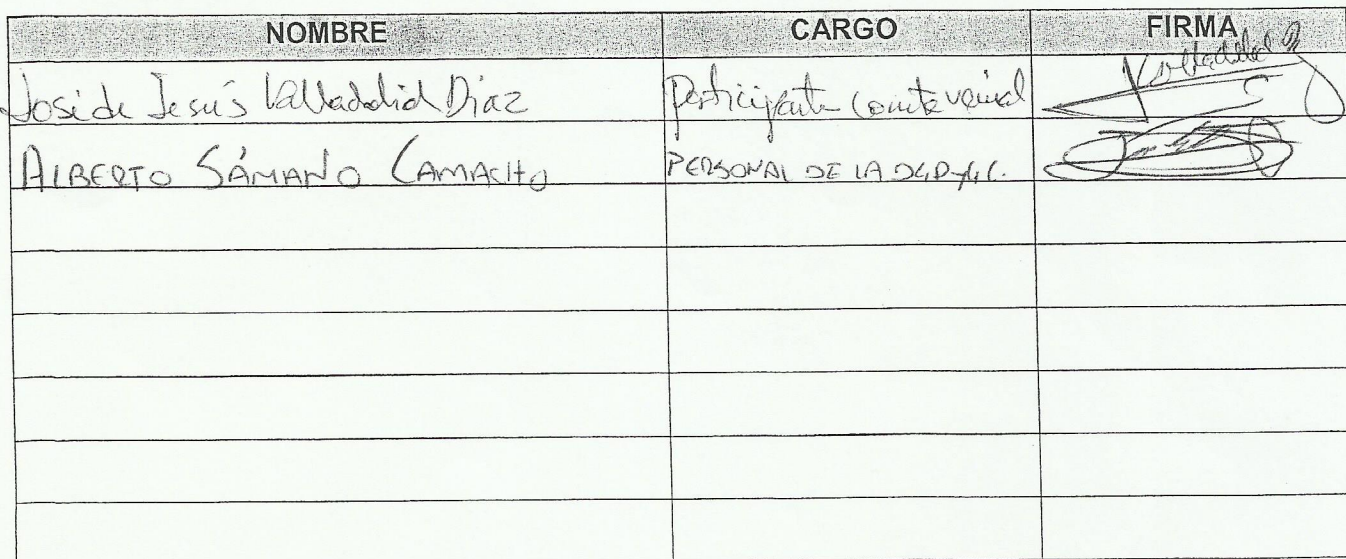 NOMBRE CARGO FIRMA
José de Jesús Valladolid Díaz Participante comité vecinal
ALBERTO SÁMANO CAMACHO PERSONAL DE LA